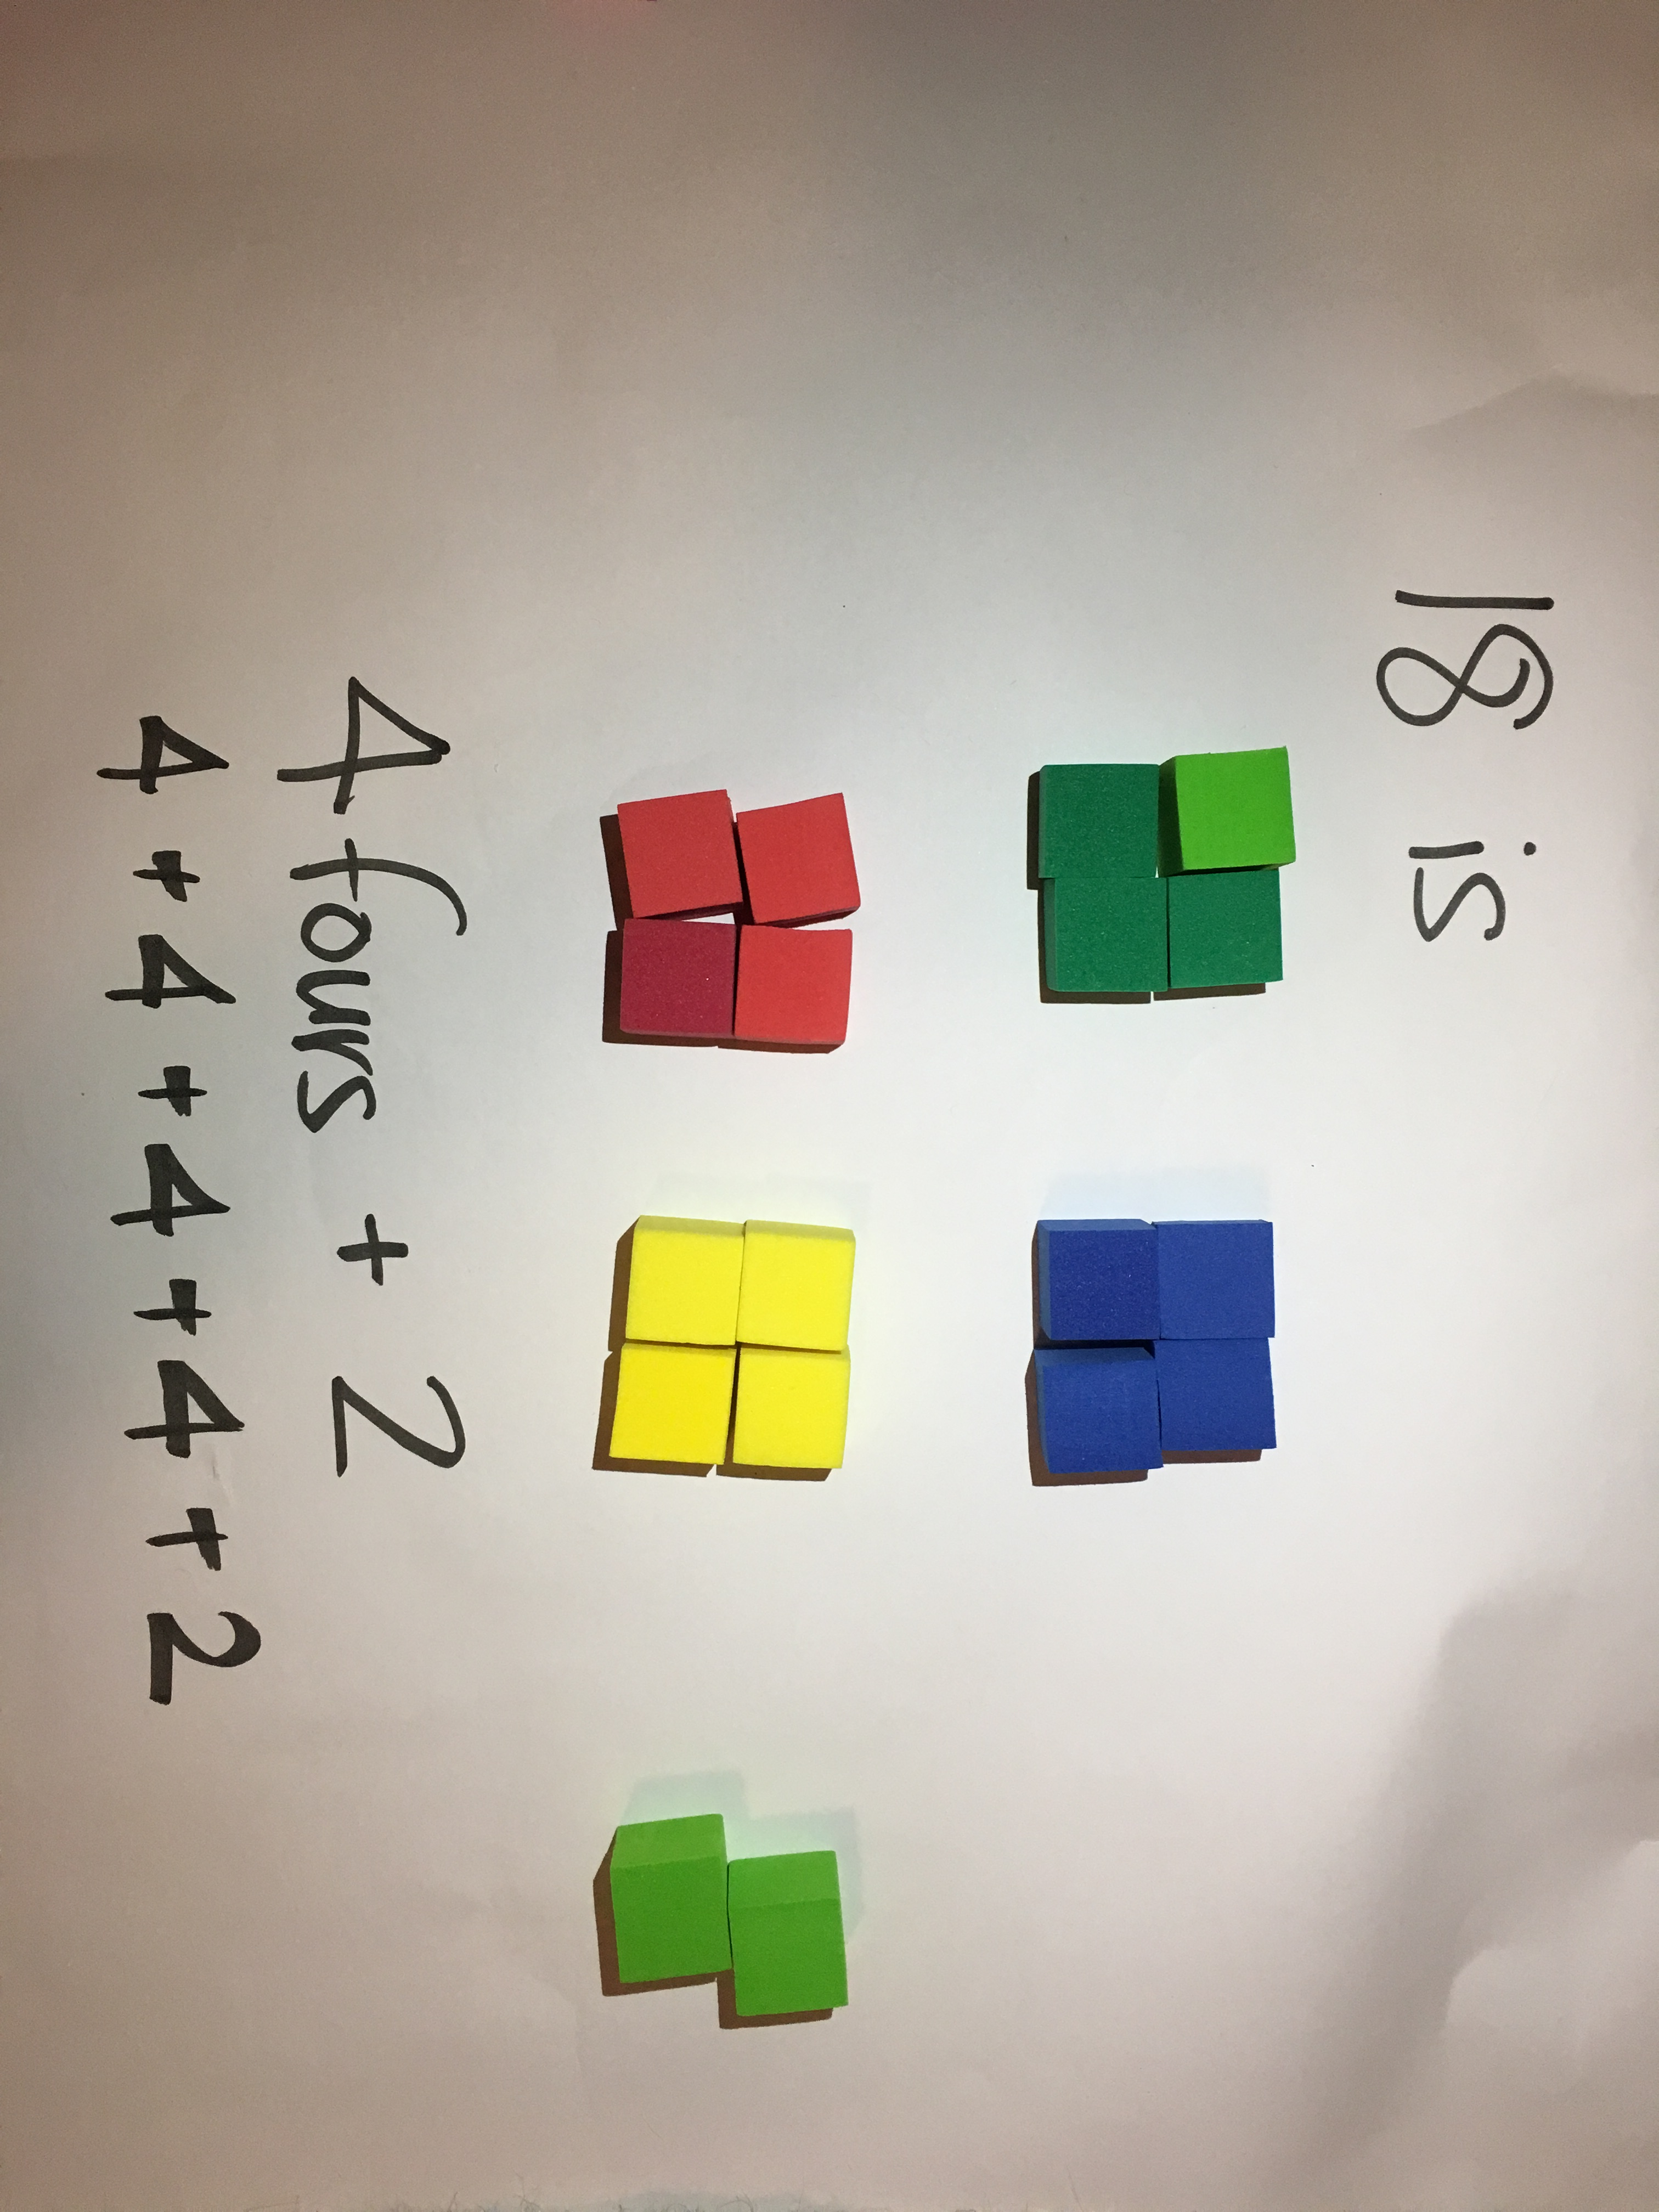 18 is
4 fours + 2
4 + 4 + 4 + 4 + 2